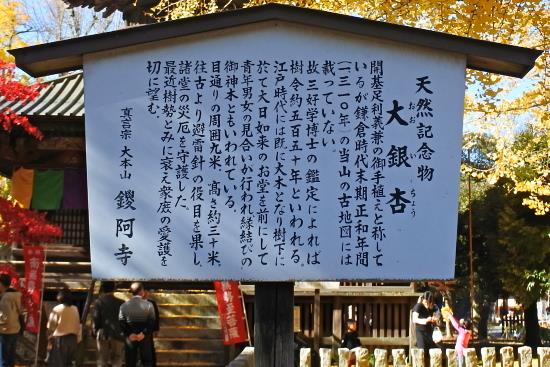 天然記念物
大銀杏
おおいちょう
開基足利義兼の御手植えと称して
いるが鎌倉時代末期正和年間
(一三一〇年)の当山の古地図には
載っていない。
故三好学博士の鑑定によれば
樹令約五百五十年といわれる。
江戸時代には既に大木となり樹下に
於て大日如来のお堂を前にして
青年男女の見合いが行われ縁結びの
御神木ともいわれている。
目通りの周囲九米、高さ約三十米、
往古より避雷針の役目を果し、
諸堂の災厄を守護した。
最近樹勢とみに衰え衆庶の愛護を
切に望む。
真言宗 大本山 鑁阿寺